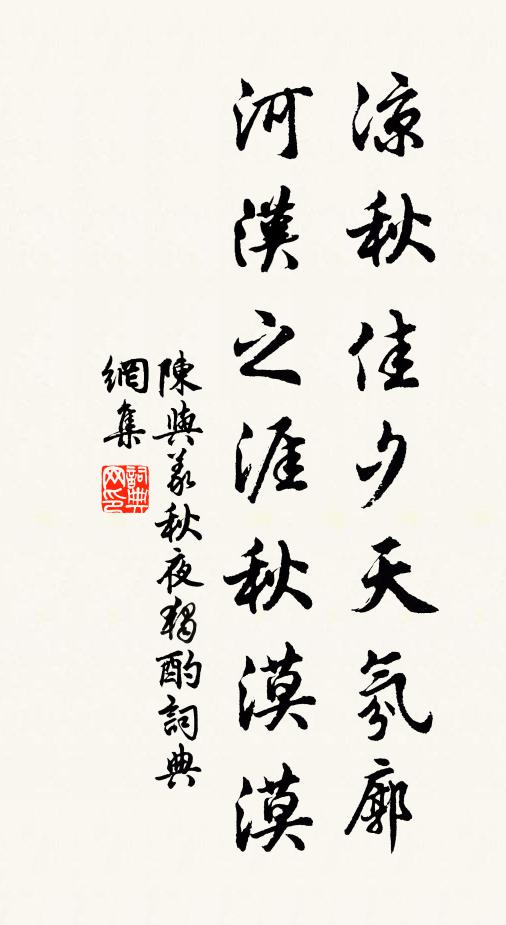 凉秋佳夕天氛廓
河漢之涯秋漠漠
陳與義秋夜獨酌詞典
網集
詞典網印